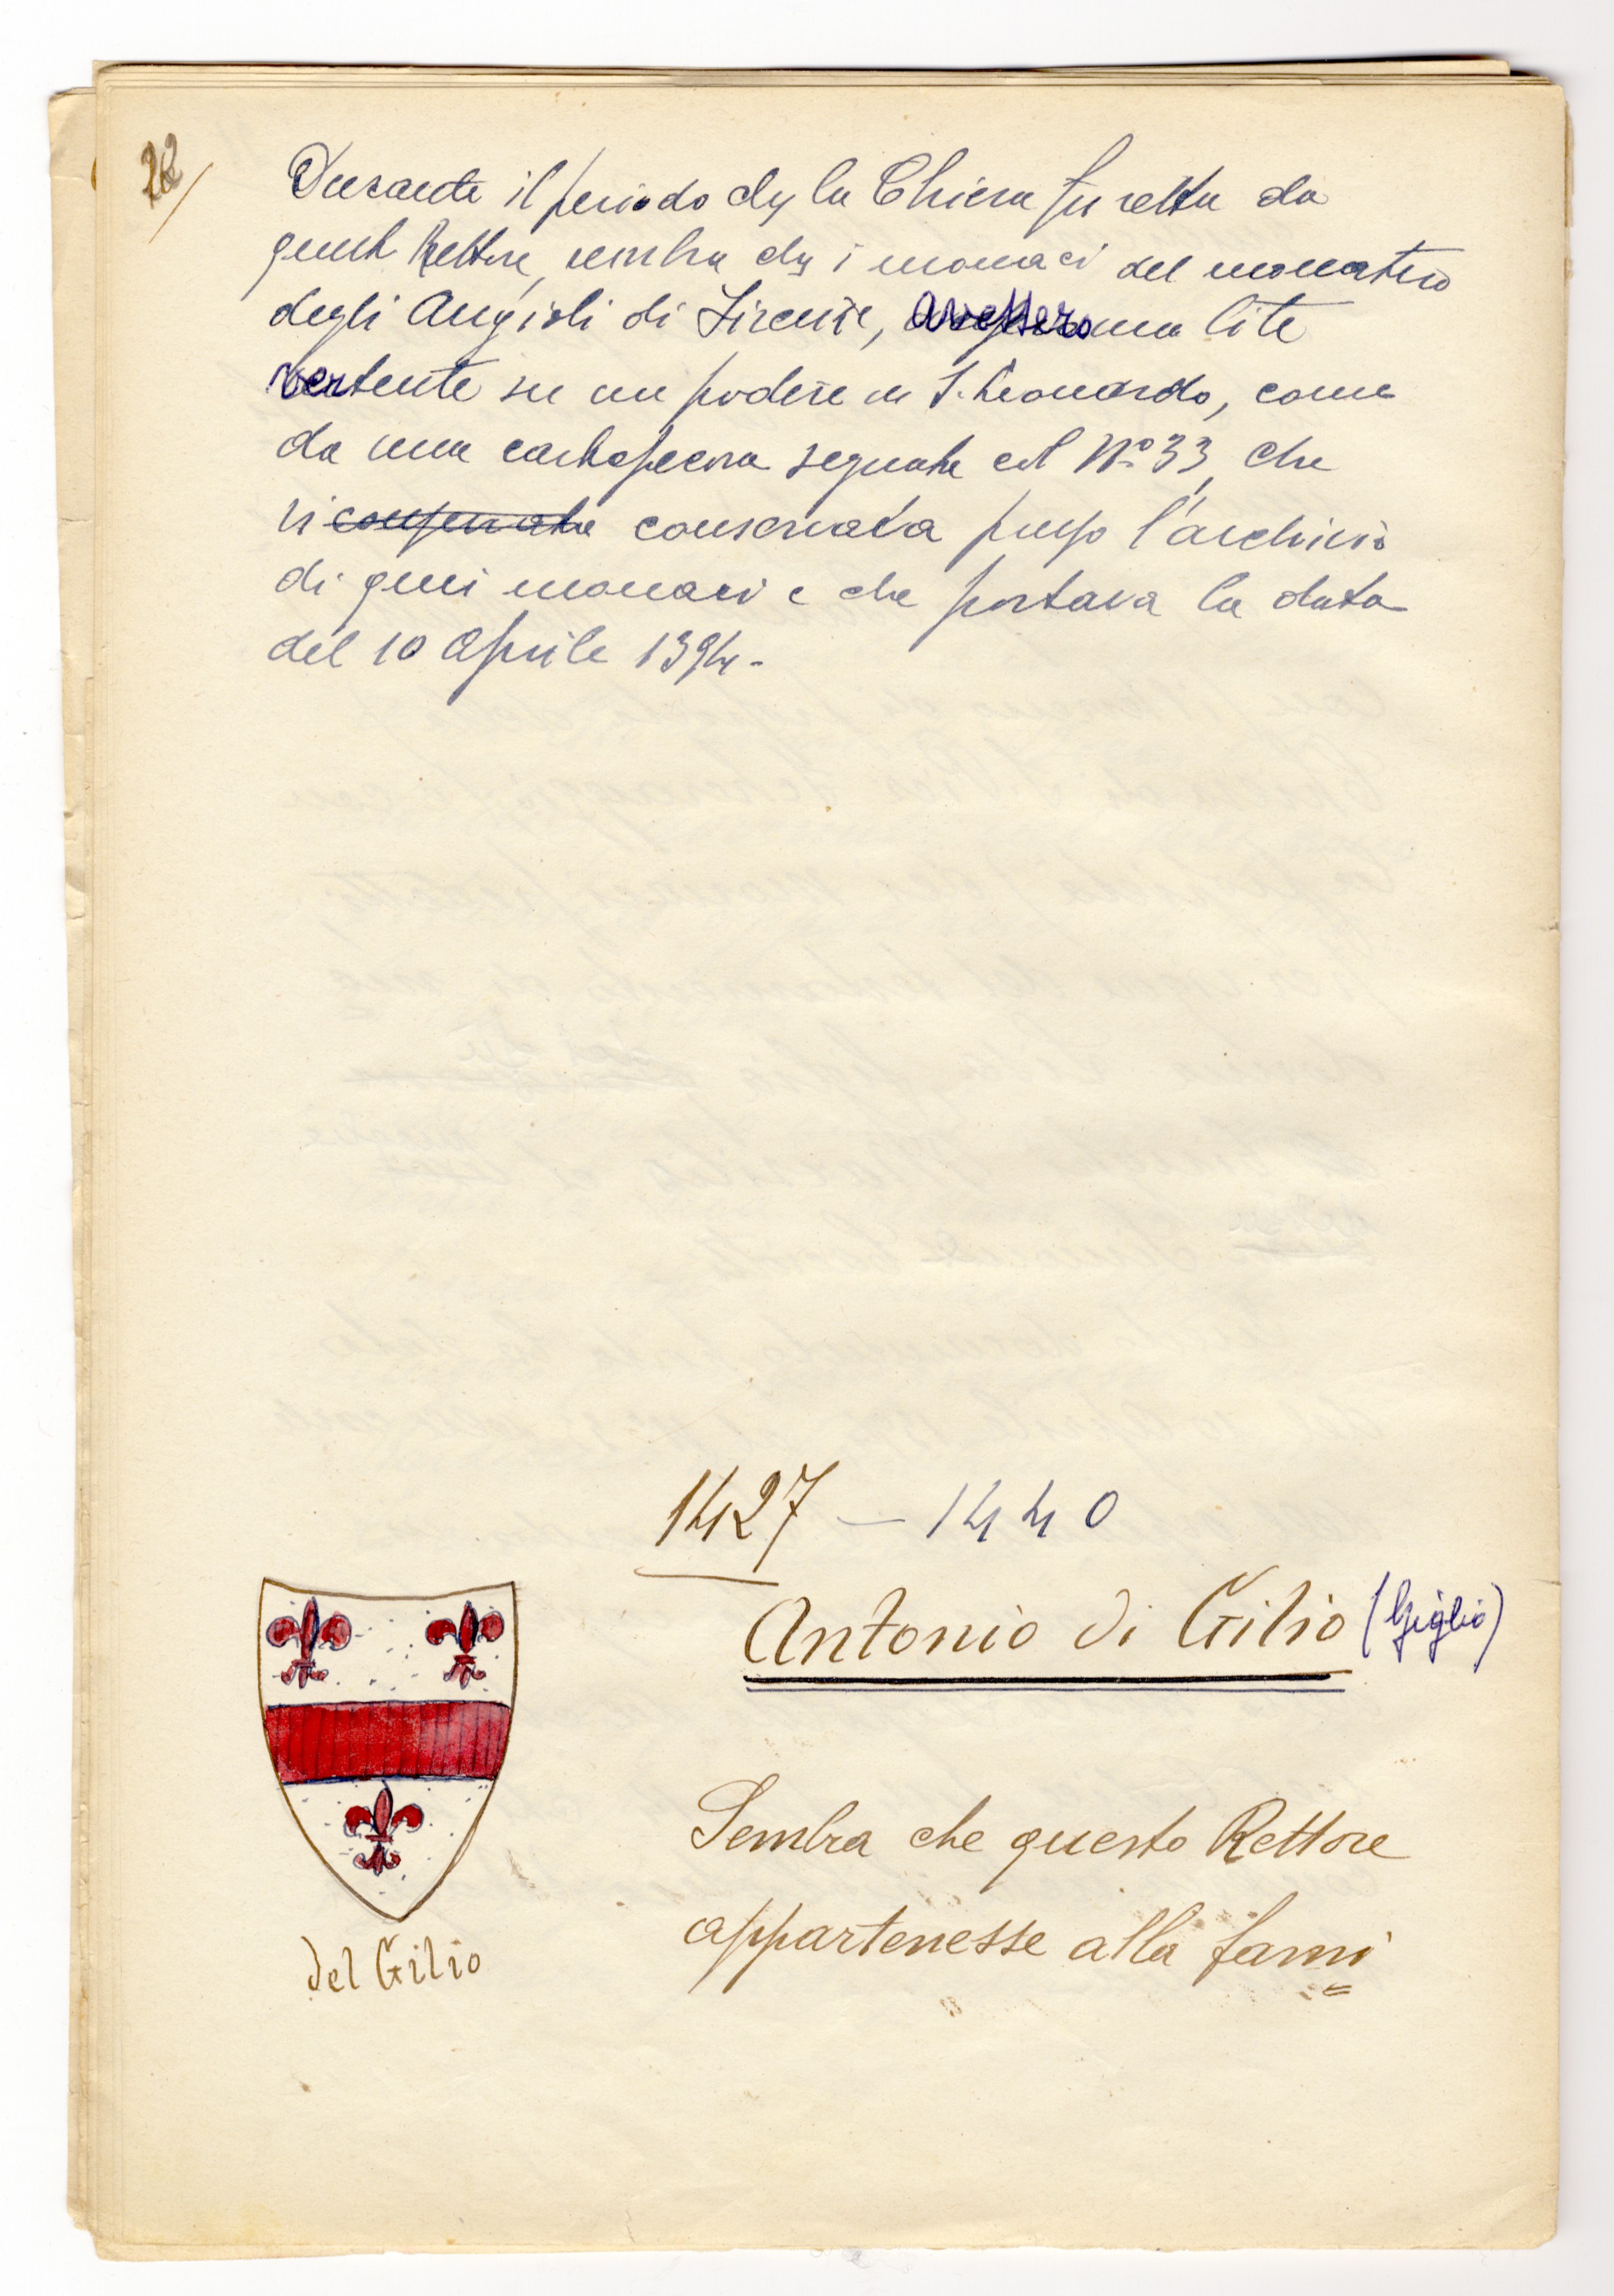 22/
Durante il periodo che la Chiesa fu retta da
questo Rettore, sembra che i monaci del monastero
degli Angioli di Firenze, avessero una lite
vertente su un podere in S. Leonardo, come
da una cartapecora segnata col Nº 33, che
si conservata conservava presso l'archivio
di quei monaci e che portava la data
del 10 Aprile 1394.
1427 — 1440
Antonio di Gilio (Giglio)
del Gilio
Sembra che questo Rettore
appartenesse alla fami